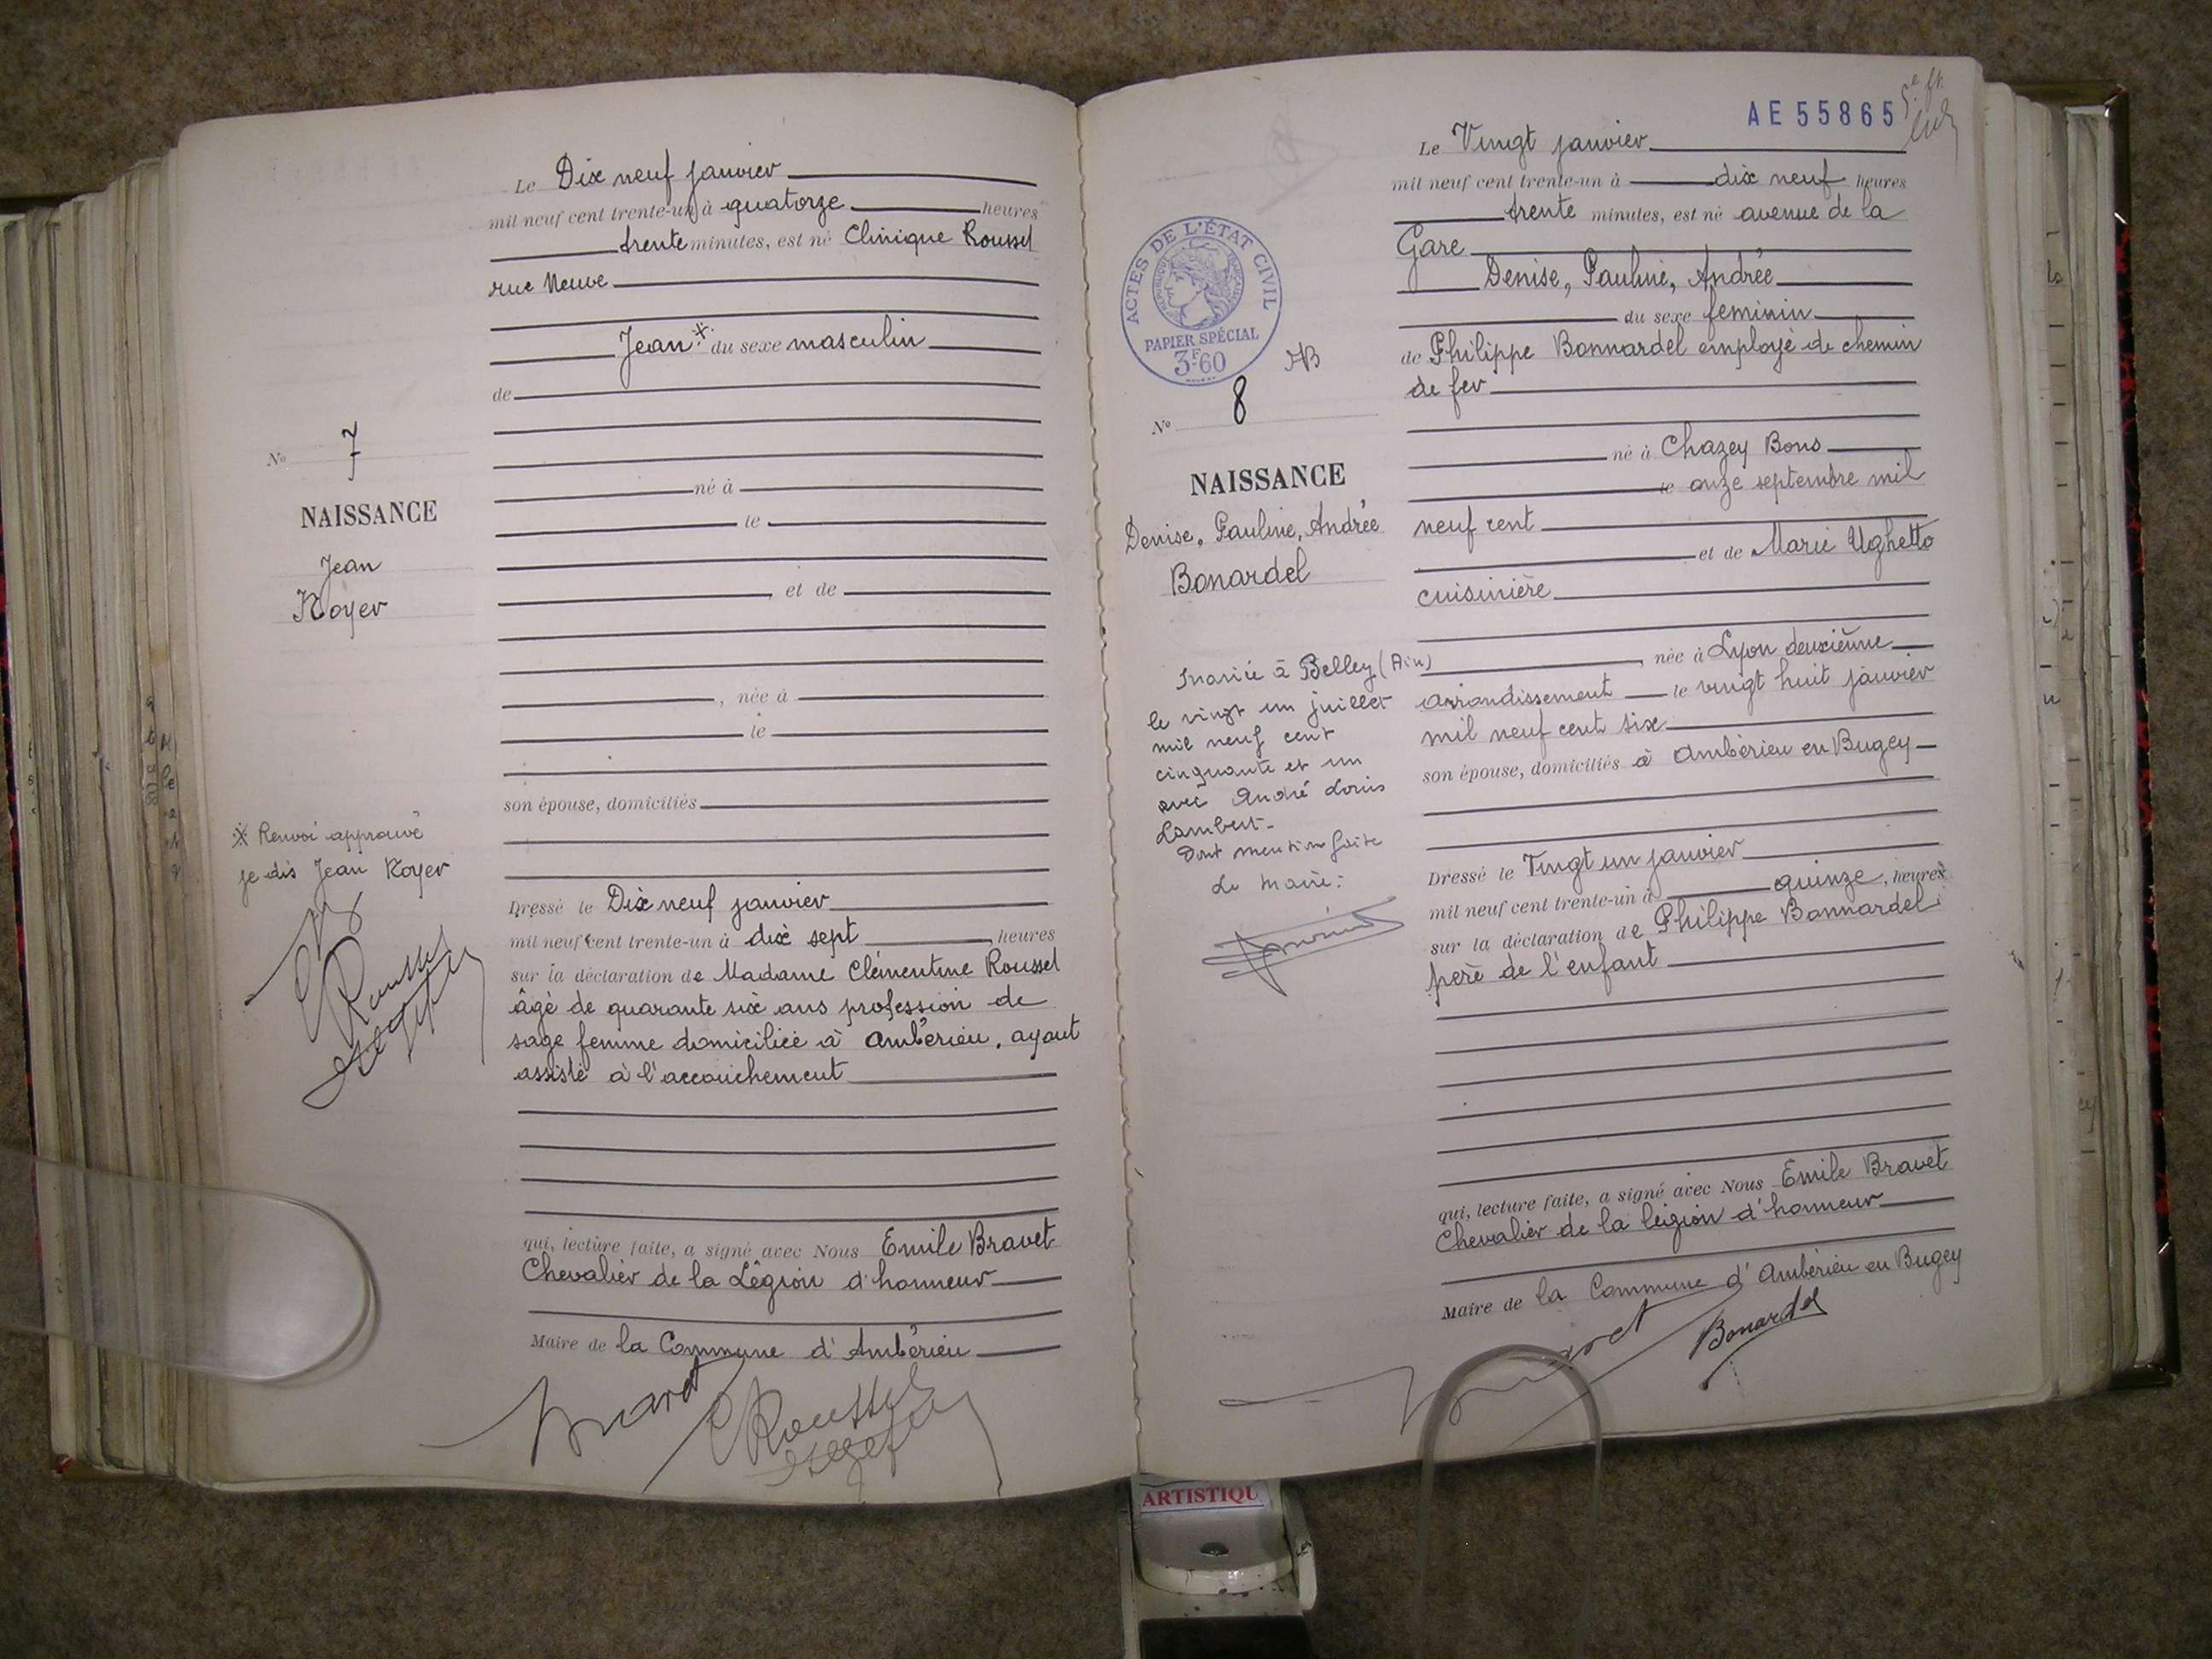 Le Dix neuf janvier
mil neuf cent trente-un à quatorze heures
trente minutes, est né Clinique Roussel
rue Neuve
Jean※ du sexe masculin
de
né à
le
et de
, née à
le
son épouse, domiciliés
Dressé le Dix neuf janvier
mil neuf cent trente-un à dix sept, heures
sur la déclaration de Madame Clémentine Roussel
âgé de quarante six ans profession de
sage femme domiciliée à Ambérieu, ayant
assisté à l'accouchement
qui, lecture faite, a signé avec Nous Emile Bravet
Chevalier de la Légion d'honneur
Maire de la Commune d'Ambérieu
Roussel
No 7
NAISSANCE
Jean
Royer
※ Renvoi approuvé
je dis Jean Royer
Roussel
AE55865
Le Vingt janvier
mil neuf cent trente-un à dix neuf heures
trente minutes, est né avenue de la
Gare
Denise, Pauline, Andrée
du sexe feminin
de Philippe Bonnardel employé de chemin
de fer
né à Chazey Bons
le onze septembre mil
neuf cent
et de Marie Ughetto
cuisinière
, née à Lyon deuxième
arrondissement le vingt huit janvier
mil neuf cent six
son épouse, domiciliés à Ambérieu en Bugey
Dressé le Vingt un janvier
mil neuf cent trente-un à quinze, heures
sur la déclaration de Philippe Bonnardel
père de l'enfant
qui, lecture faite, a signé avec Nous Emile Bravet
Chevalier de la légion d'honneur
Maire de la Commune d'Ambérieu en Bugey
Bonardel
ACTES DE L'ÉTAT CIVIL
RÉPUBLIQUE FRANÇAISE
PAPIER SPÉCIAL
3F60
No 8
NAISSANCE
Denise, Pauline, Andrée
Bonardel
Mariée à Belley (Ain)
le vingt un juillet
mil neuf cent
cinquante et un
avec André Louis
Lambert.
Dont mention faite
Le Maire:
ARTISTIQU